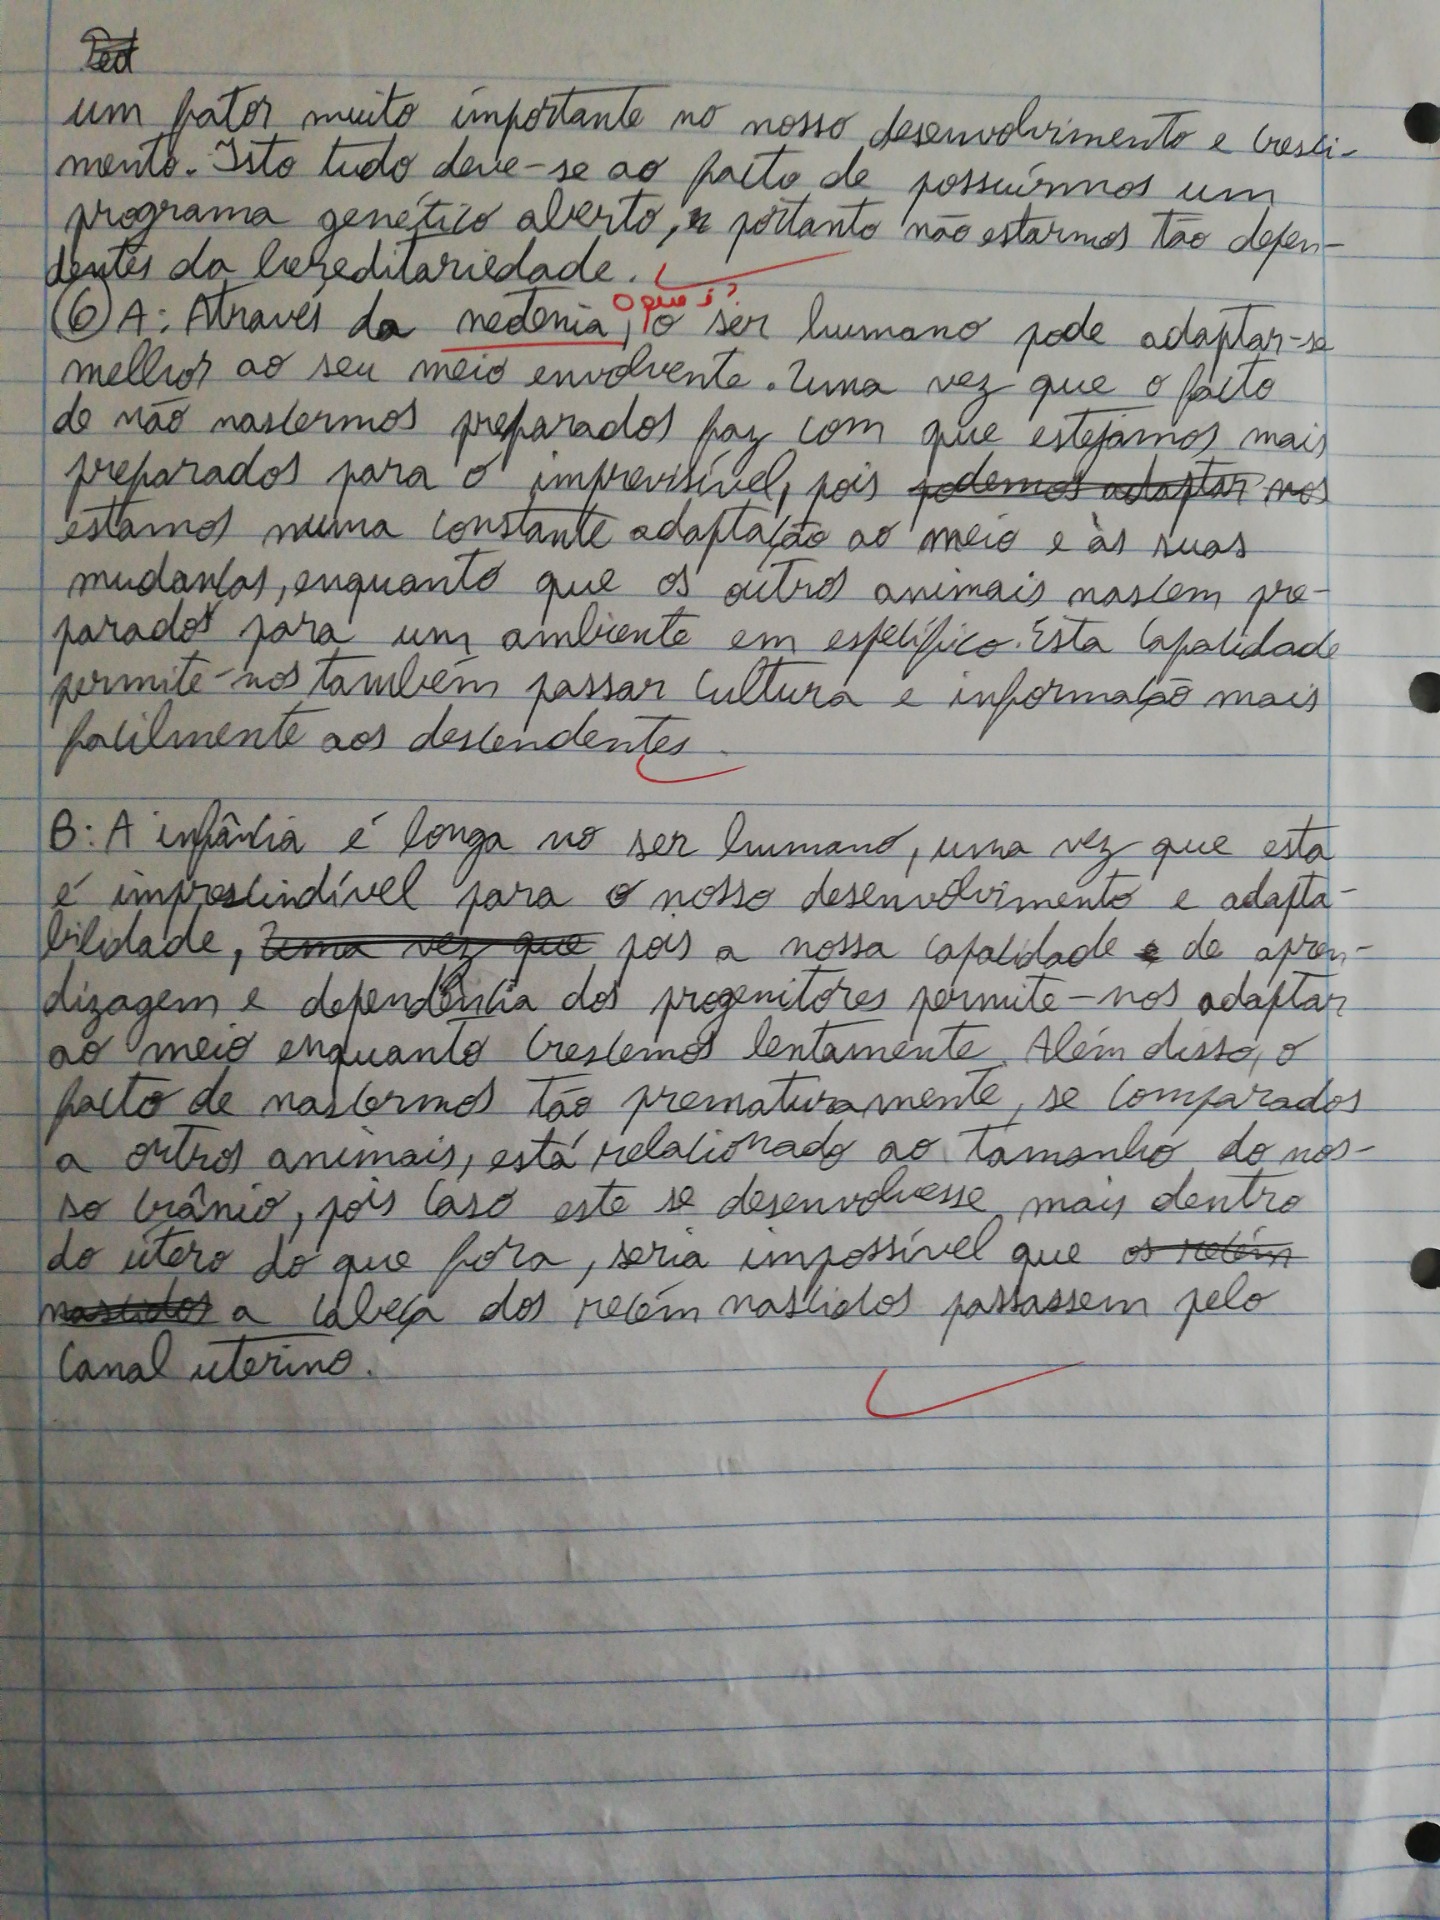 um fator muito importante no nosso desenvolvimento e cresci-
mento. Isto tudo deve-se ao facto de possuírmos um
programa genético aberto, e portanto não estarmos tão depen-
dentes da hereditariedade.
o que é?
6 A: Através da neotenia, o ser humano pode adaptar-se
melhor ao seu meio envolvente. Uma vez que o facto
de não nascermos preparados faz com que estejamos mais
preparados para o imprevisível, pois podemos adaptar nos
estamos numa constante adaptação ao meio e às suas
mudanças, enquanto que os outros animais nascem pre-
parados para um ambiente em específico. Esta capacidade
permite-nos também passar cultura e informação mais
facilmente aos descendentes.
B: A infância é longa no ser humano, uma vez que esta
é imprescindível para o nosso desenvolvimento e adapta-
bilidade, Uma vez que pois a nossa capacidade e de apren-
dizagem e dependência dos progenitores permite-nos adaptar
ao meio enquanto crescemos lentamente. Além disso, o
facto de nascermos tão prematuramente, se comparados
a outros animais, está relacionado ao tamanho do nos-
so crânio, pois caso este se desenvolvesse mais dentro
do útero do que fora, seria impossível que os recém
nascidos a cabeça dos recém nascidos passassem pelo
canal uterino.